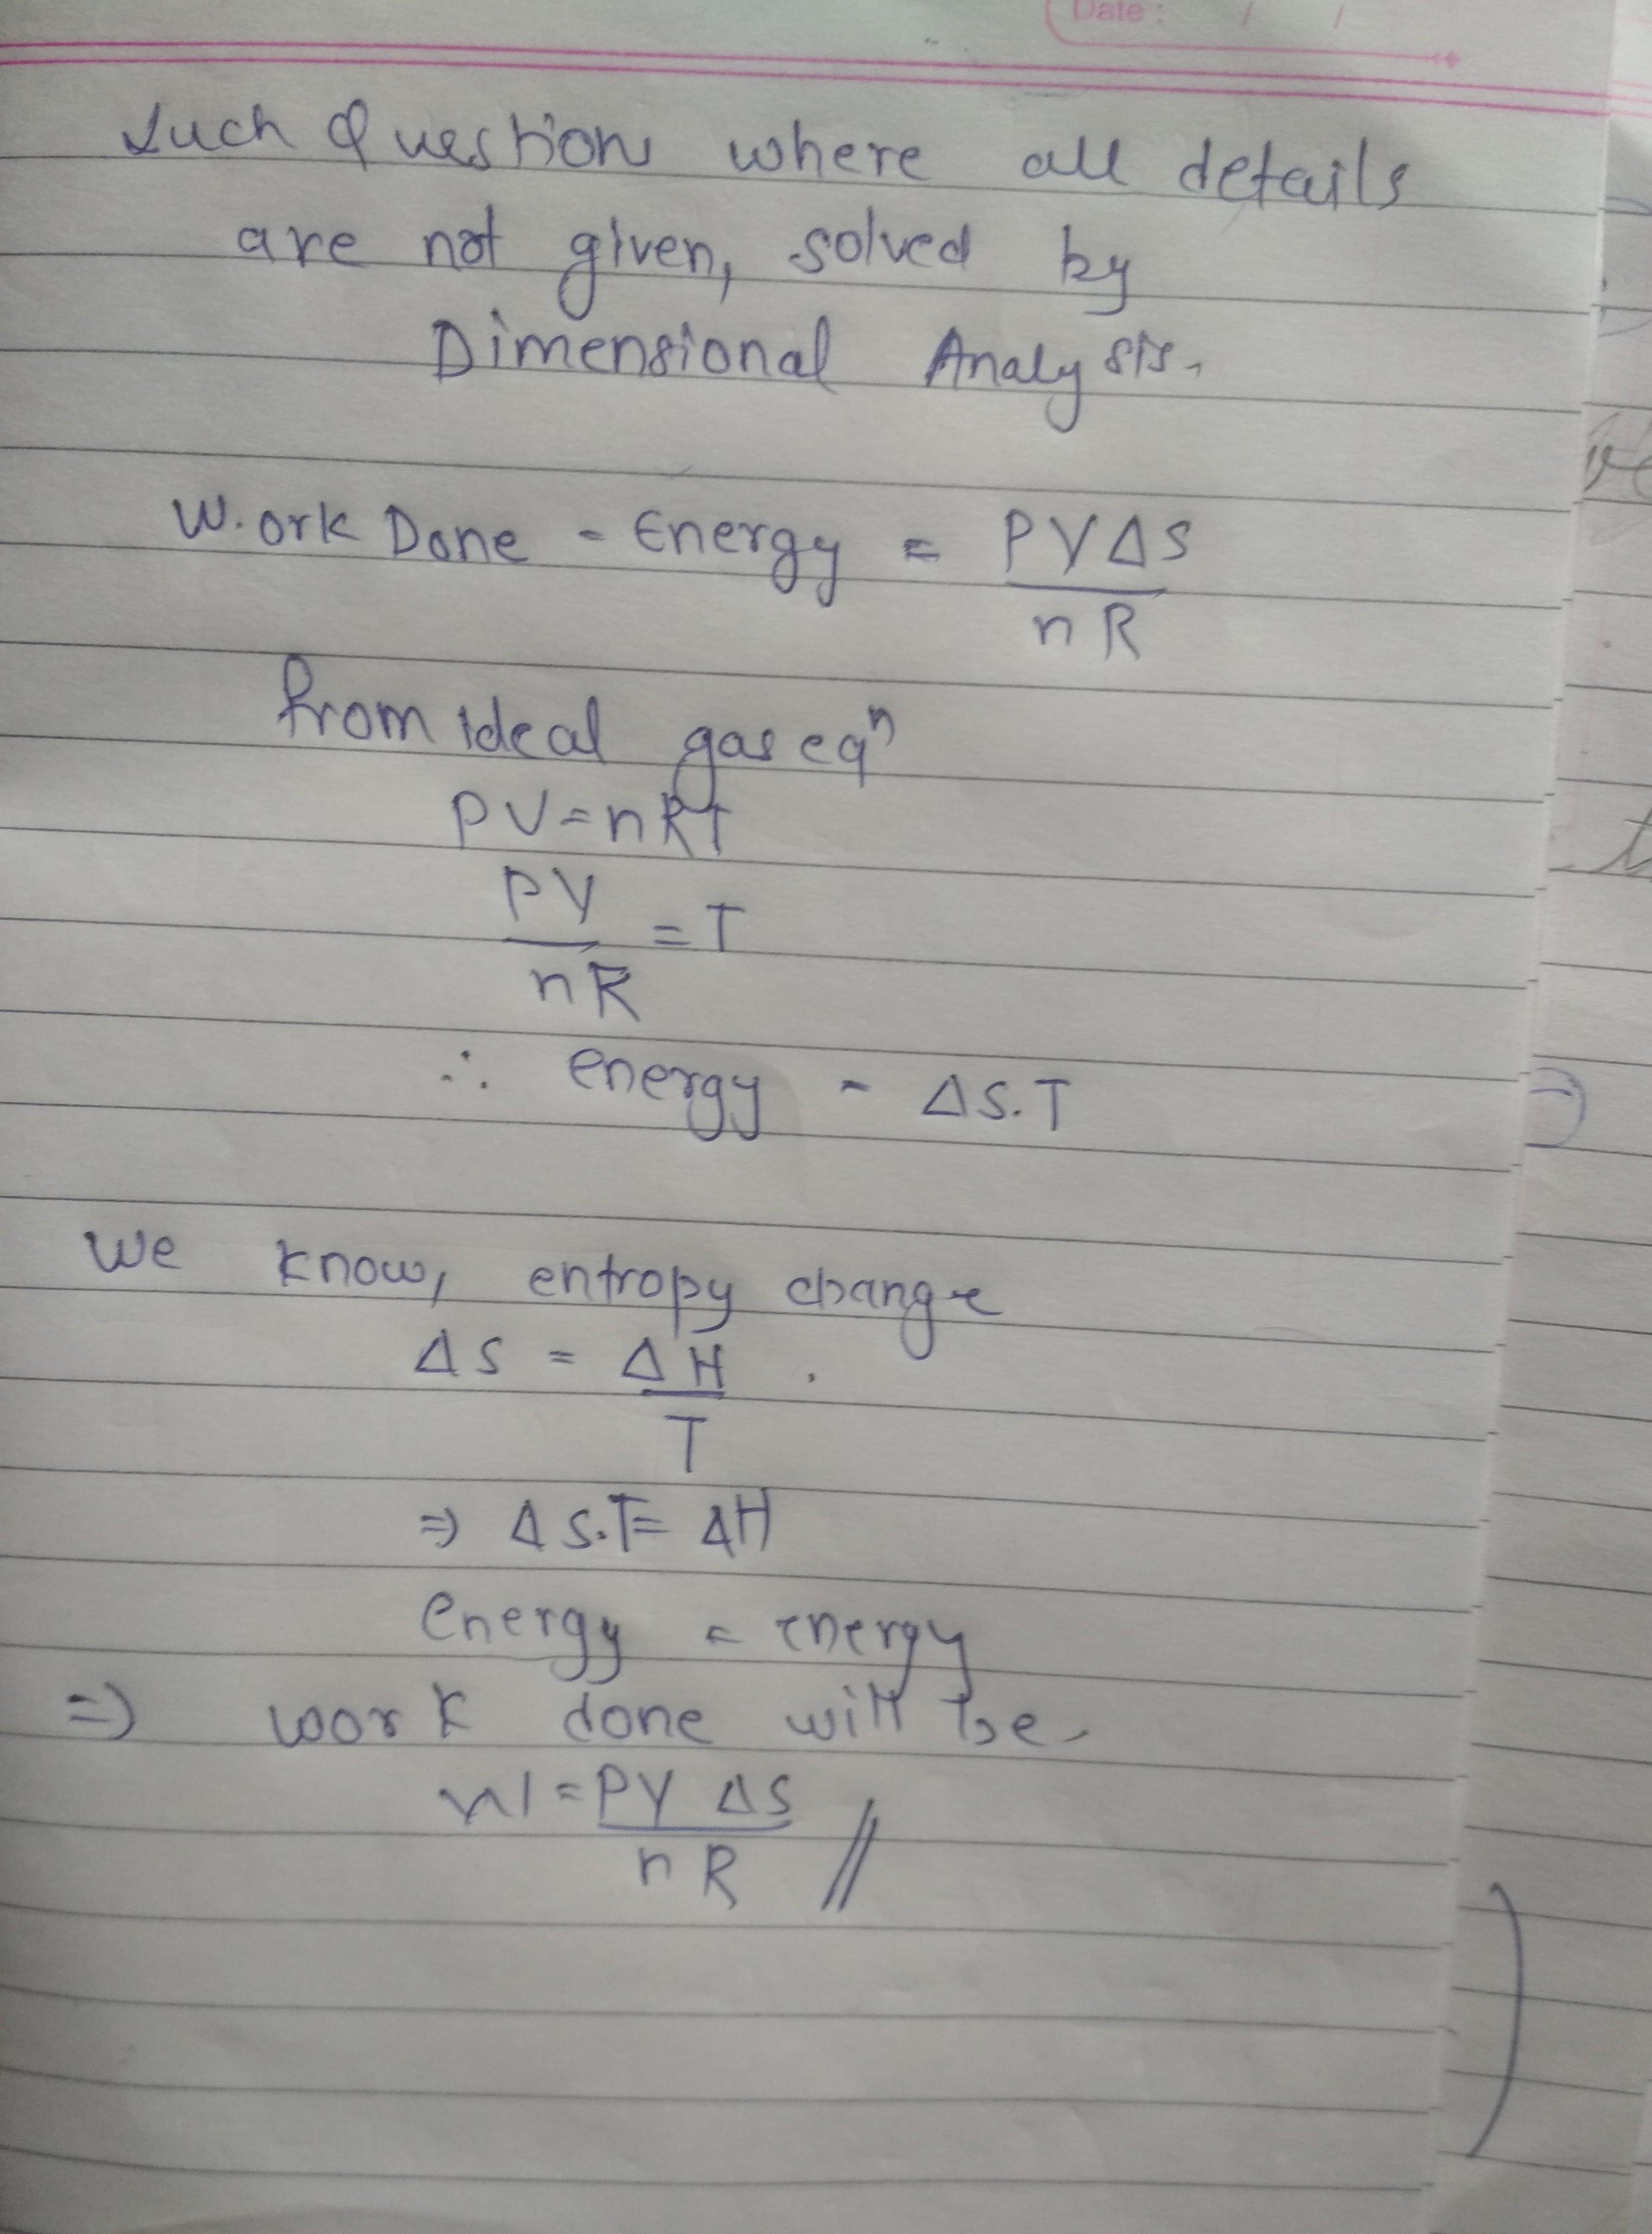 Date : / /
Such Questions where all details
are not given, solved by
Dimensional Analysis.
W.ork Done - Energy = PVΔS
nR
from ideal gas eqⁿ
PV=nRT
PV = T
nR
∴ energy - ΔS.T
We know, entropy change
ΔS = ΔH .
T
⇒ ΔS.T= ΔH
energy = energy
⇒ work done will be
W = PV ΔS //
nR